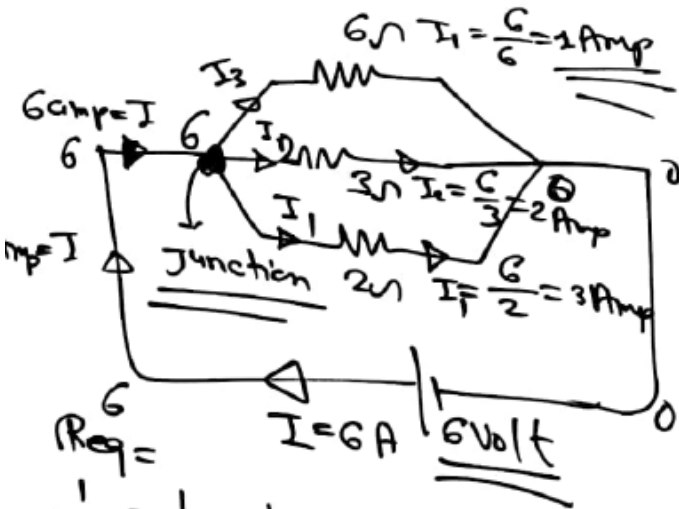 6Ω I₁ = 6/6 = 1 Amp
I₃
6amp = I
6
6
I₂
3Ω I₂ = 6/3 = 2 Amp
0
0
I₁
mp = I
Junction
2Ω I₁ = 6/2 = 3 Amp
6
I = 6A
6 Volt
0
Req =
1